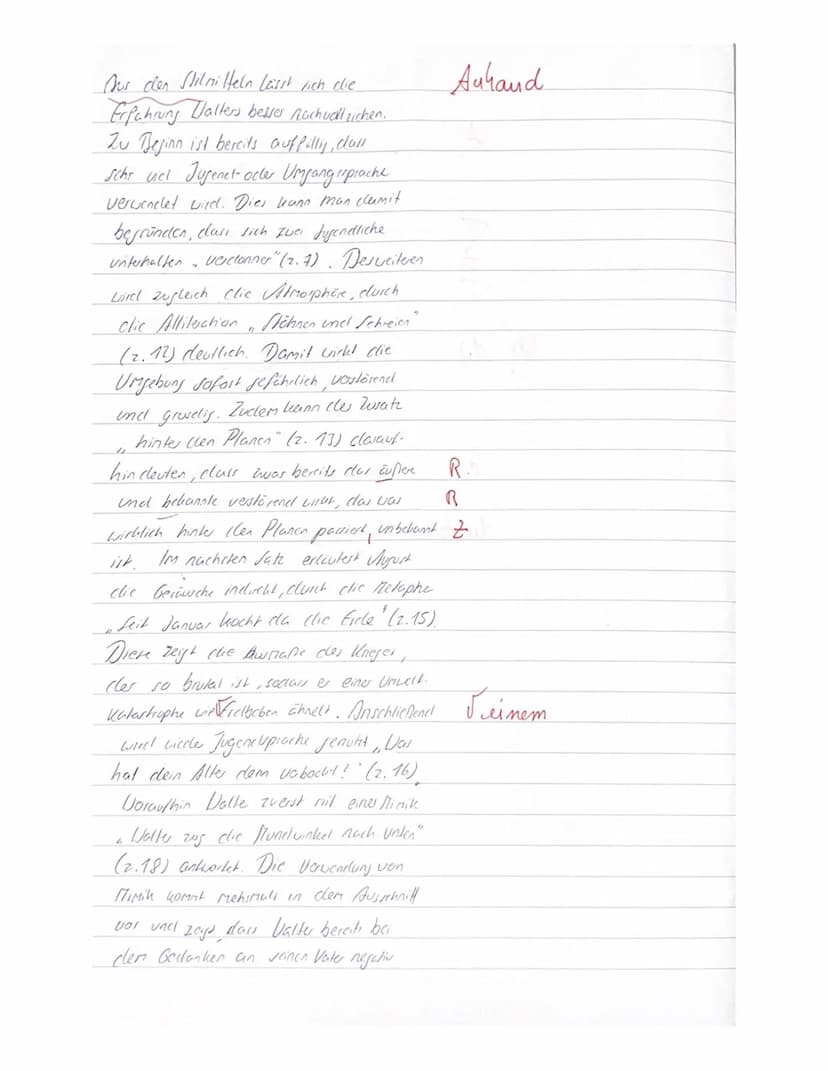 Aus den Stilmitteln lässt sich die Anhand
Erfahrung Walters besser nachvollziehen.
Zu Beginn ist bereits auffällig, dass
sehr viel Jugend- oder Umgangssprache
verwendet wird. Dies kann man damit
begründen, dass sich zwei Jugendliche
unterhalten „verdonner" (z. 7). Desweiteren
wird zugleich die Atmosphäre, durch
die Alliteration „Stöhnen und Schreien"
(z. 12) deutlich. Damit wirkt die
Umgebung sofort gefährlich, verstörend
und gruselig. Zudem kann der Zusatz
„hinter den Planen" (z. 13) darauf-
hindeuten, dass zwar bereits das äußere R.
und bekannte verstörend wirkt, das was R
wirklich hinter den Planen passiert, unbekannt Z
ist. Im nächsten Satz erläutert August
die Geräusche indirekt, durch die Metapher
„Seit Januar kocht da die Erde" (z. 15).
Diese zeigt die Ausmaße des Krieges,
der so brutal ist, sodass er einer Umwelt-
katastrophe wie Erdbeben ähnelt. Anschließend √ einem
wird wieder Jugendsprache genutzt „Was
hat dein Alter denn verbockt?" (z. 16)
Woraufhin Walter zuerst mit einer Mimik
„Walter zog die Mundwinkel nach unten"
(z. 18) antwortet. Die Verwendung von
Mimik kommt mehrmals in dem Ausschnitt
vor und zeigt, dass Walter bereits bei
dem Gedanken an seinen Vater negativ